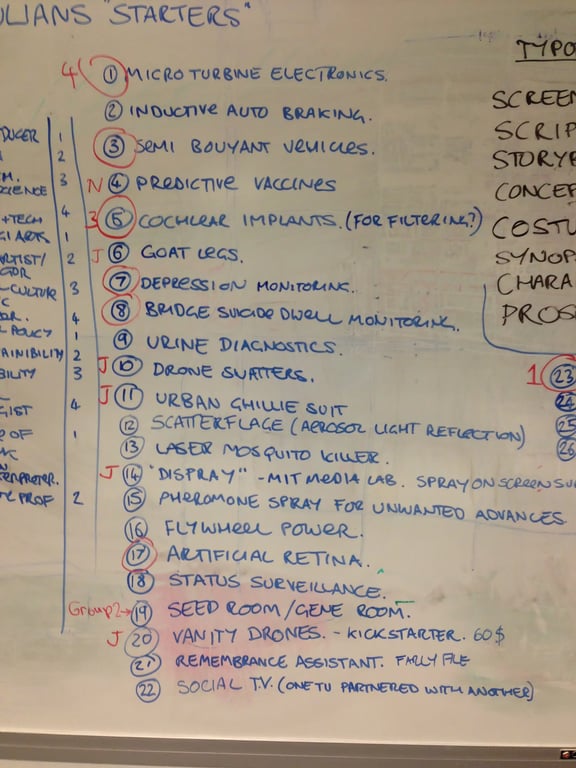 ULIANS "STARTERS"
4 1 MICRO TURBINE ELECTRONICS.
2 INDUCTIVE AUTO BRAKING.
3 SEMI BOUYANT VEHICLES.
N 4 PREDICTIVE VACCINES
3 5 COCHLEAR IMPLANTS. (FOR FILTERING?)
J 6 GOAT LEGS.
7 DEPRESSION MONITORING.
8 BRIDGE SUICIDE DWELL MONITORING.
9 URINE DIAGNOSTICS.
J 10 DRONE SWATTERS.
J 11 URBAN GHILLIE SUIT
12 SCATTERFLAGE (AEROSOL LIGHT REFLECTION)
13 LASER MOSQUITO KILLER.
J 14 "DISPRAY" - MIT MEDIA LAB. SPRAY ON SCREEN SU
15 PHEROMONE SPRAY FOR UNWANTED ADVANCES
16 FLYWHEEL POWER.
17 ARTIFICIAL RETINA.
18 STATUS SURVEILLANCE.
Group 2→ 19 SEED ROOM/GENE ROOM.
J 20 VANITY DRONES. - KICKSTARTER. 60$
21 REMEMBRANCE ASSISTANT.
22 SOCIAL T.V. (ONE TV PARTNERED WITH ANOTHER)
DUCER 1
2
M. 3
SCIENCE
+TECH 4
GI ARTS 1
ARTIST/ 2
GDR
-CULTURE 3
C
DR. 4
L POLICY 1
AINIBILITY 2
BILITY 3
GIST 4
E OF 1
ERPRETER.
TE PROF 2
TYPO
SCREEN
SCRIP
STORYB
CONCEP
COSTU
SYNOP
CHARA
PROS
1 23
24
25
26